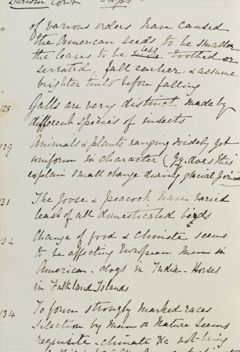 " of various orders have caused
the American seeds to be smaller
the leaves to be less toothed or
serrated fall earlier & assume
brighter tints before falling
125 Galls are very distinct made by
different species of insects
129 Animals & plants ranging widely yet
uniform in character (Qy. does this
explain small change during glacial period
131 The Goose & Peacock have varied
least of all domesticated birds
132 Change of food & climate seems
to be affecting European men in
American - dogs in India - Horses
in Falkland Islands
134 To form strongly marked races
Selection by Man or Nature seems
requisite - climate &c not being